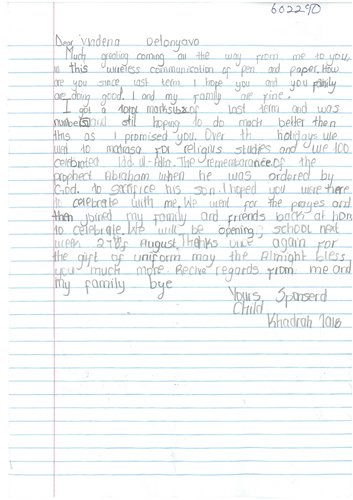 602290
Dear Vindena Delonyavo
Much greating coming all the way from me to you
in this wireless communication of pen and paper. How
are you since last term I hope you and you family
are doing good. I and my family are fine.
I got a total marks of last term and was
number and still hoping to do much better then
this as I promised you. Over th holidays we
went to madrasa for religius studies and we too
celebrated Idd-ul-Adha. The rememberance of the
prophect Abraham when he was ordered by
God. to sacrifice his son. I hoped you were there
to celebrate with me. We went for the prayes and
then joined my family and friends back at home
to celebrate. We will be opening school next
week 27th of August. Thanks once again for
the gift of uniform may the Almight bless
you much more. Recive regards from me and
my family bye
Yours Sponserd
Child
Khadrah Talib